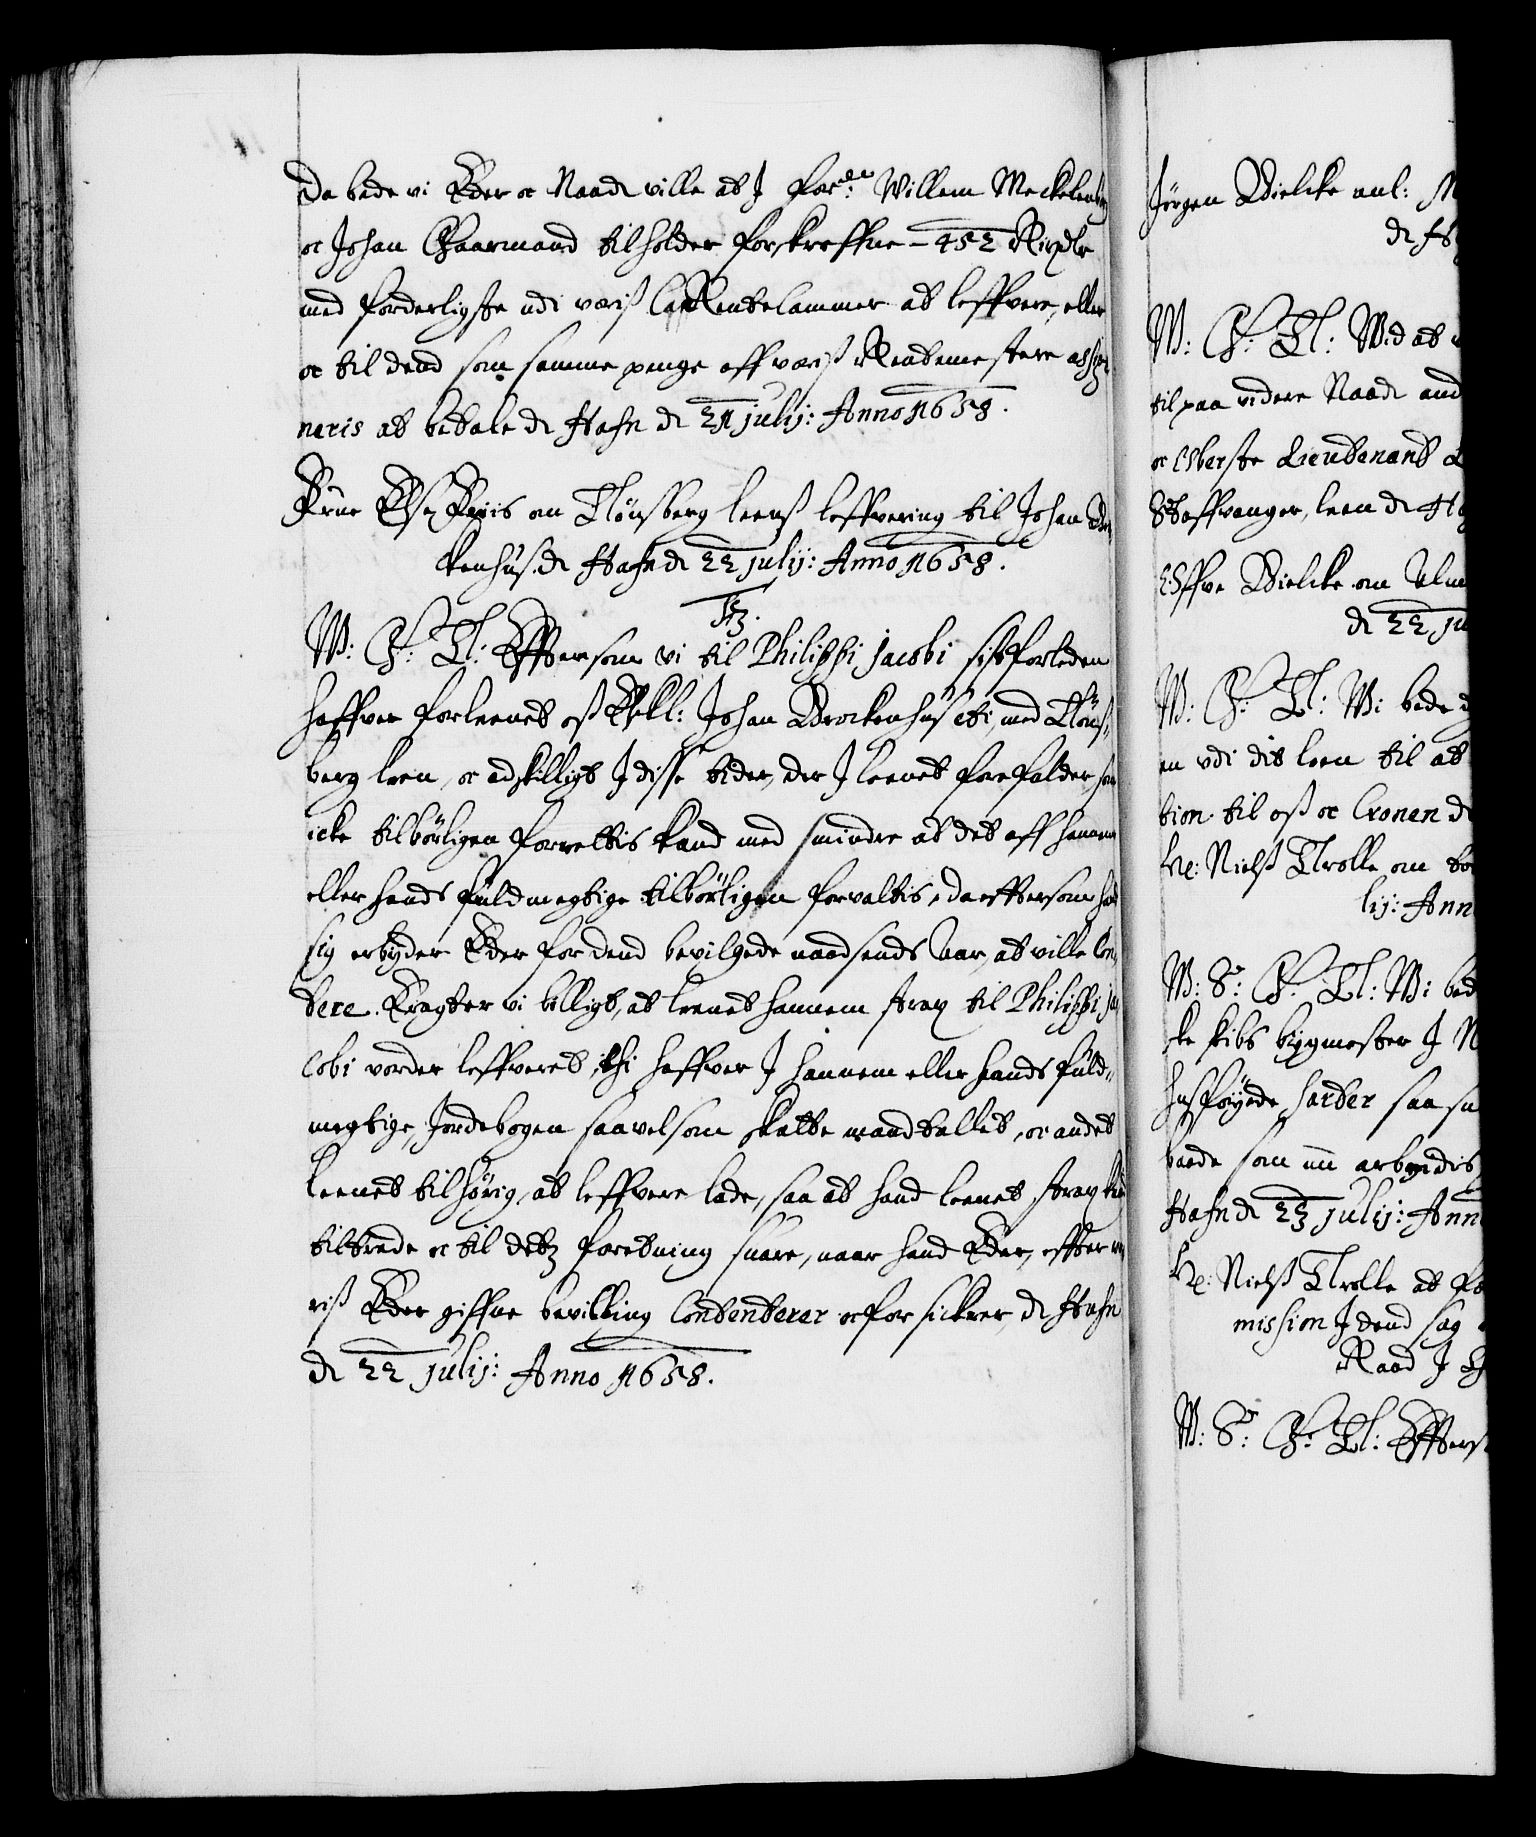 Da bede vi Eder oc Naad: ville at I for:ne Willem Meckelenb
oc Johan Gaarmand tilholder forskreffne – 452 Rixdlr
med forderligste udi voris Rentecammer at leffvere, eller
oc til dend som samme penge aff voris Rentemestere assig
neris at betale de Hafn d 21 julij: Anno 1658.
Frue Else Friis om Tönsberg leens leffvering til Johan Bro
kenhus. de Hafn d 22 julij: Anno 1658.
F3.
W: G: T: Effter som vi til Philippi jacobi sistforleden
haffver forleenet oss Elskl: Johan Brockenhus etc, med Töns-
berg leen, oc adskilligt I disse tider, der I leenet forefalder, som
icke tilbörligen forrettis kand med mindre at det aff hannem
eller hands fuldmegtige tilbörligen forvaltis, da effter som hand
sig erbyder Eder for dend bevilgede naadsends Aar, at ville Con
tere. Eragter vi billigt, at leenet hannem strax til Philippi ja
cobi vorder leffveret, thi haffver I hannem eller hands fuld-
megtige, Jordebogen saavelsom skatte mandtallet, oc andet
leenet tilhörig, at leffvere lade, saa at hand leenet strax kan
tiltrede oc til detz forretning suare, naar hand Eder, effter vo
ris Eder giffne bevilling Contenterer oc forsickrer, de Hafn
d 22 julij: Anno 1658.
Jörgen Bielcke anl: M
de Ha
W: G: T: Wid at
til paa videre Naad: and
oc Oberste Lieutenant
Staffvanger, leen de Ha
Offve Bielcke om
d 22 ju
W: G: T: Wi bede
en udi dit leen til at
tion til oss oc Cronen d
Hr: Niels Trolle om
lij: Ann
W: S: G: T: Wi bed
ske skibs bygmester I N
hosföyede Harder saa
baade som nu arbeydis
Hafn d 23 julij: Ann
Hr: Niels Trolle at
mission I dend sag
Raad I
W: S: G: T: Effters